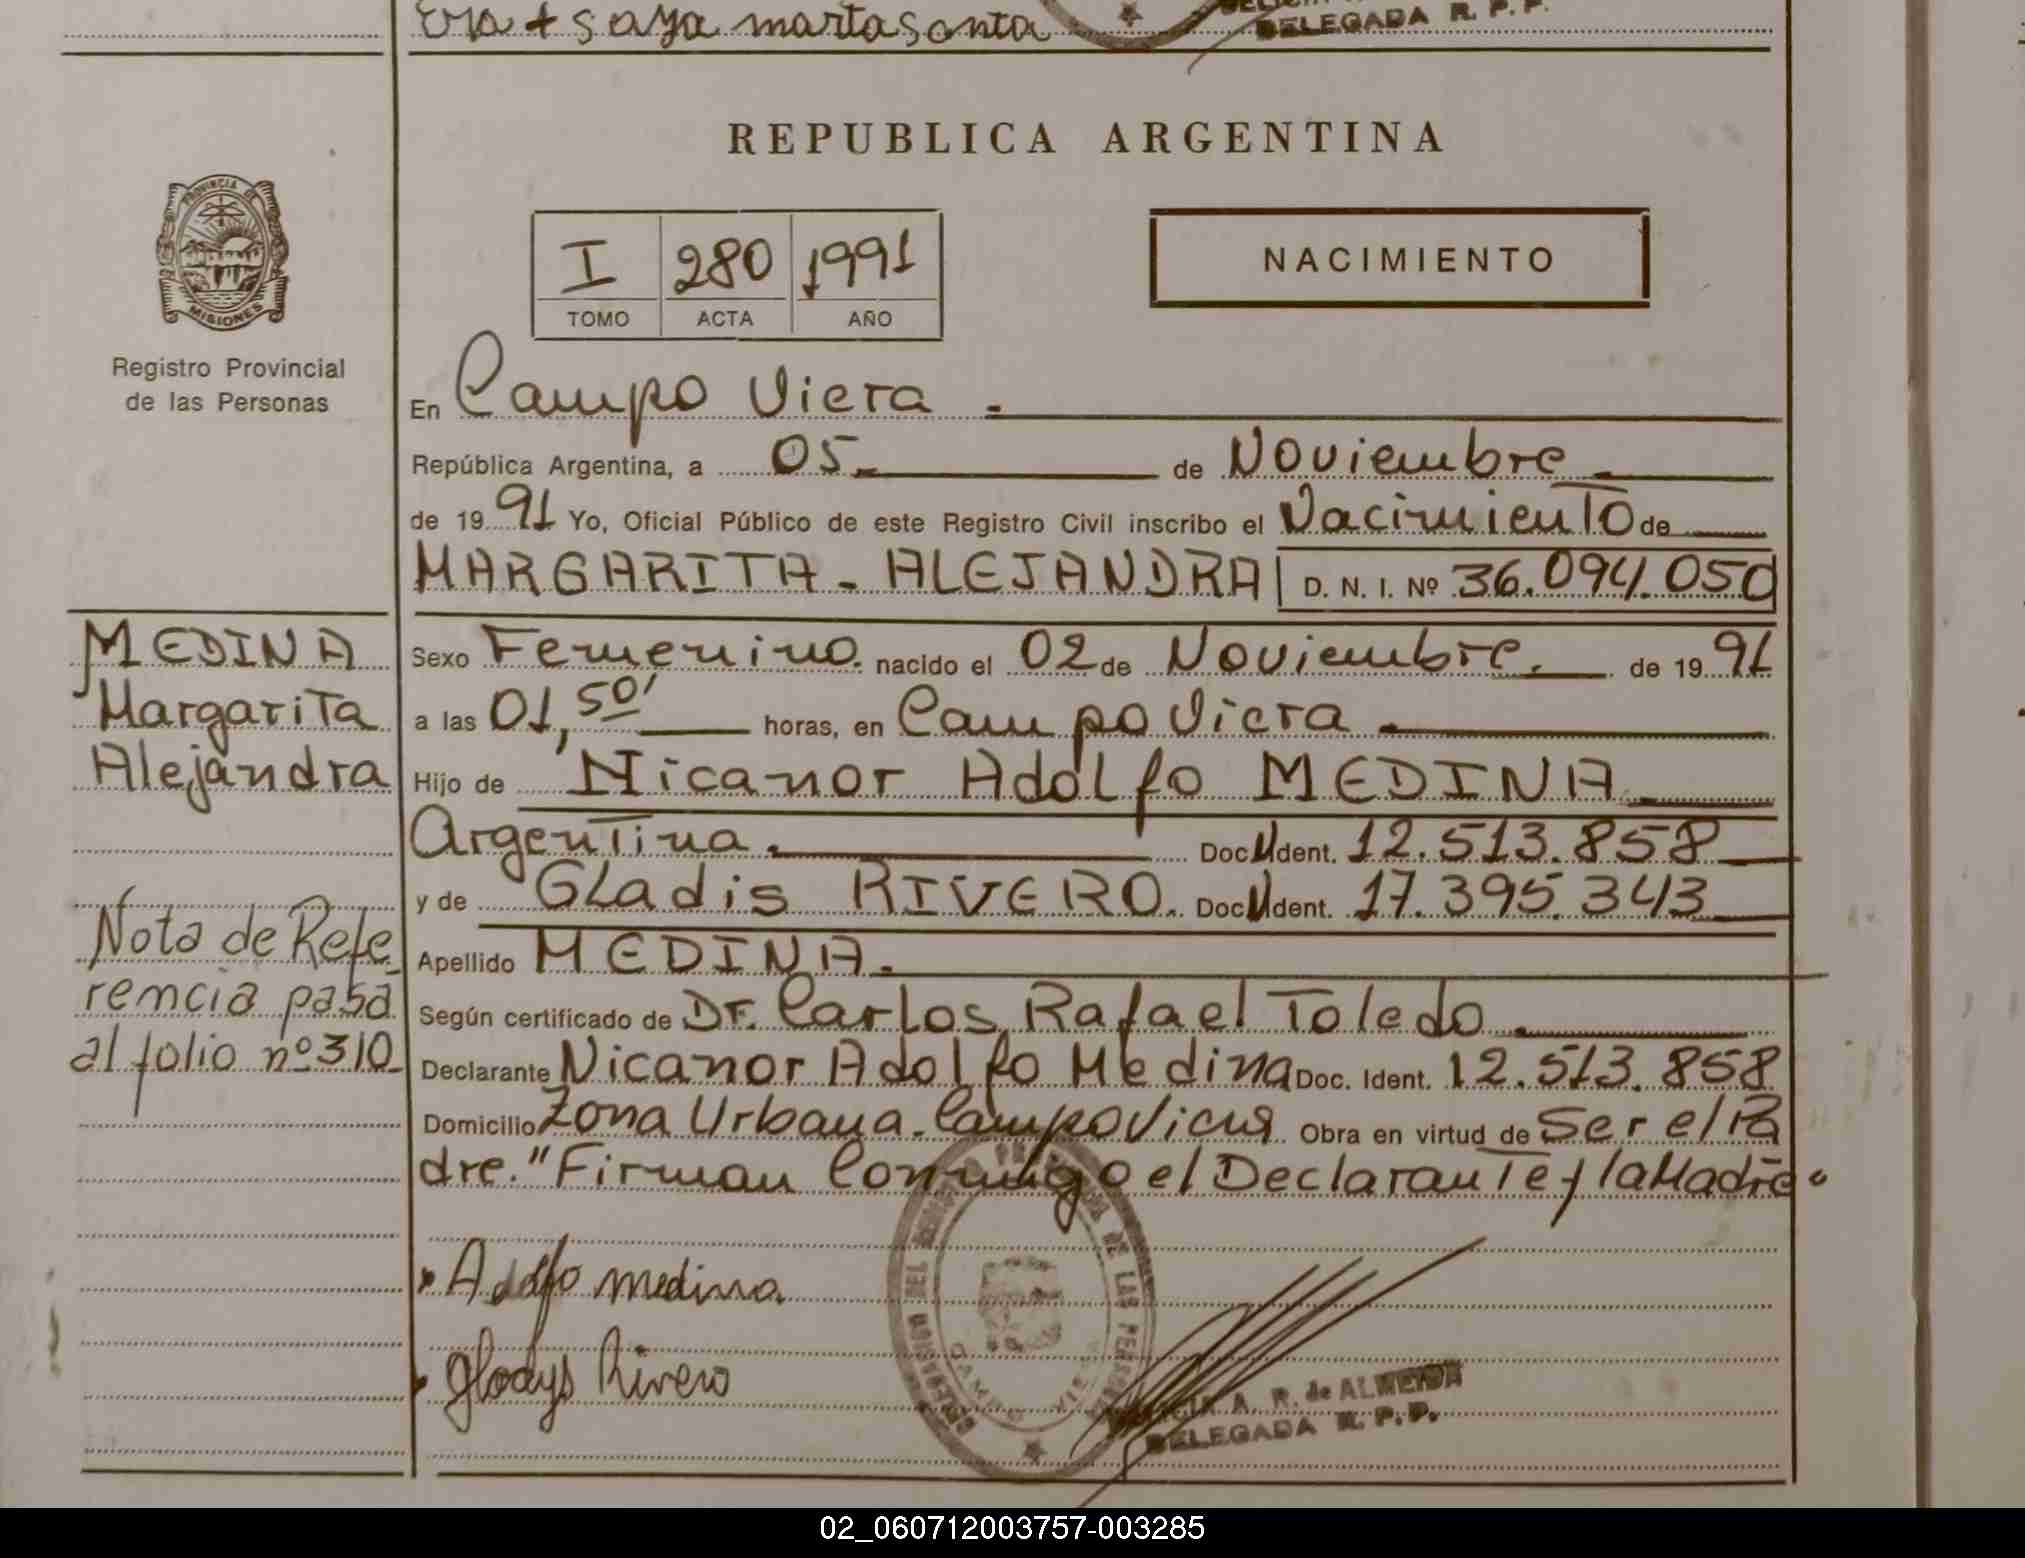 saya marta sonia
DELEGADA R. P. P.
REPUBLICA ARGENTINA
PROVINCIA DE
MISIONES
Registro Provincial
de las Personas
I 280 1991
TOMO ACTA AÑO
NACIMIENTO
En Campo Viera.
República Argentina, a 05. de Noviembre
de 19 91 Yo, Oficial Público de este Registro Civil inscribo el Nacimiento de
MARGARITA - ALEJANDRA D. N. I. Nº 36.094.050
MEDINA
Margarita
Alejandra
Sexo Femenino. nacido el 02 de Noviembre. de 19 91
a las 01,50' horas, en Campo Viera
Hijo de Nicanor Adolfo MEDINA
Argentina. Doc. Ident. 12.513.858
y de GLadis RIVERO. Doc. Ident. 17.395.343
Nota de Refe
rencia pasa
al folio nº 310
Apellido MEDINA.
Según certificado de Dr. Carlos Rafael Toledo.
Declarante Nicanor Adolfo Medina Doc. Ident. 12.513.858
Domicilio Zona Urbana - Campo Viera Obra en virtud de Ser el Pa
dre. "Firman Conmigo el Declarante y la Madre"
Adolfo medina
Gladys Rivero
A. R. de ALMEIDA
DELEGADA R. P. P.
02_060712003757-003285